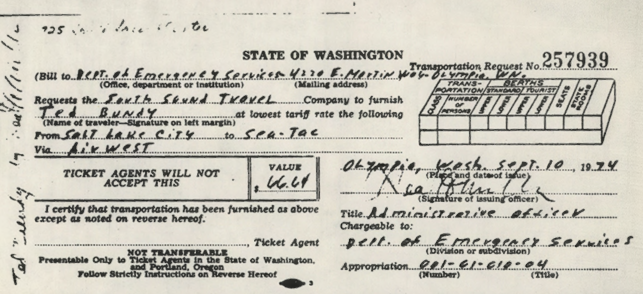 STATE OF WASHINGTON
Transportation Request No. 257939
(Bill to Dept. of Emergency Services-4220 E. Martin Way-Olympia, WN.
(Office, department or institution) (Mailing address)
Requests the South Sound Travel Company to furnish
Ted Bundy at lowest tariff rate the following
(Name of traveler—Signature on left margin)
From Salt Lake City to Sea-Tac
Via Airwest
TRANS-PORTATION
BERTHS
STANDARD
TOURIST
CLASS
NUMBER OF PERSONS
LOWER
UPPER
LOWER
UPPER
SEATS
STATE ROOMS
TICKET AGENTS WILL NOT ACCEPT THIS
VALUE
$ 66.64
Olympia, Wash. Sept. 10, 1974
(Place and date of issue)
(Signature of issuing officer)
I certify that transportation has been furnished as above
except as noted on reverse hereof.
Title Administrative Officer
Chargeable to:
Dept. of Emergency Services
(Division or subdivision)
Ticket Agent
NOT TRANSFERABLE
Presentable Only to Ticket Agents in the State of Washington,
and Portland, Oregon
Follow Strictly Instructions on Reverse Hereof
Appropriation 001-61-610-04
(Number) (Title)
3
Ted Bundy by